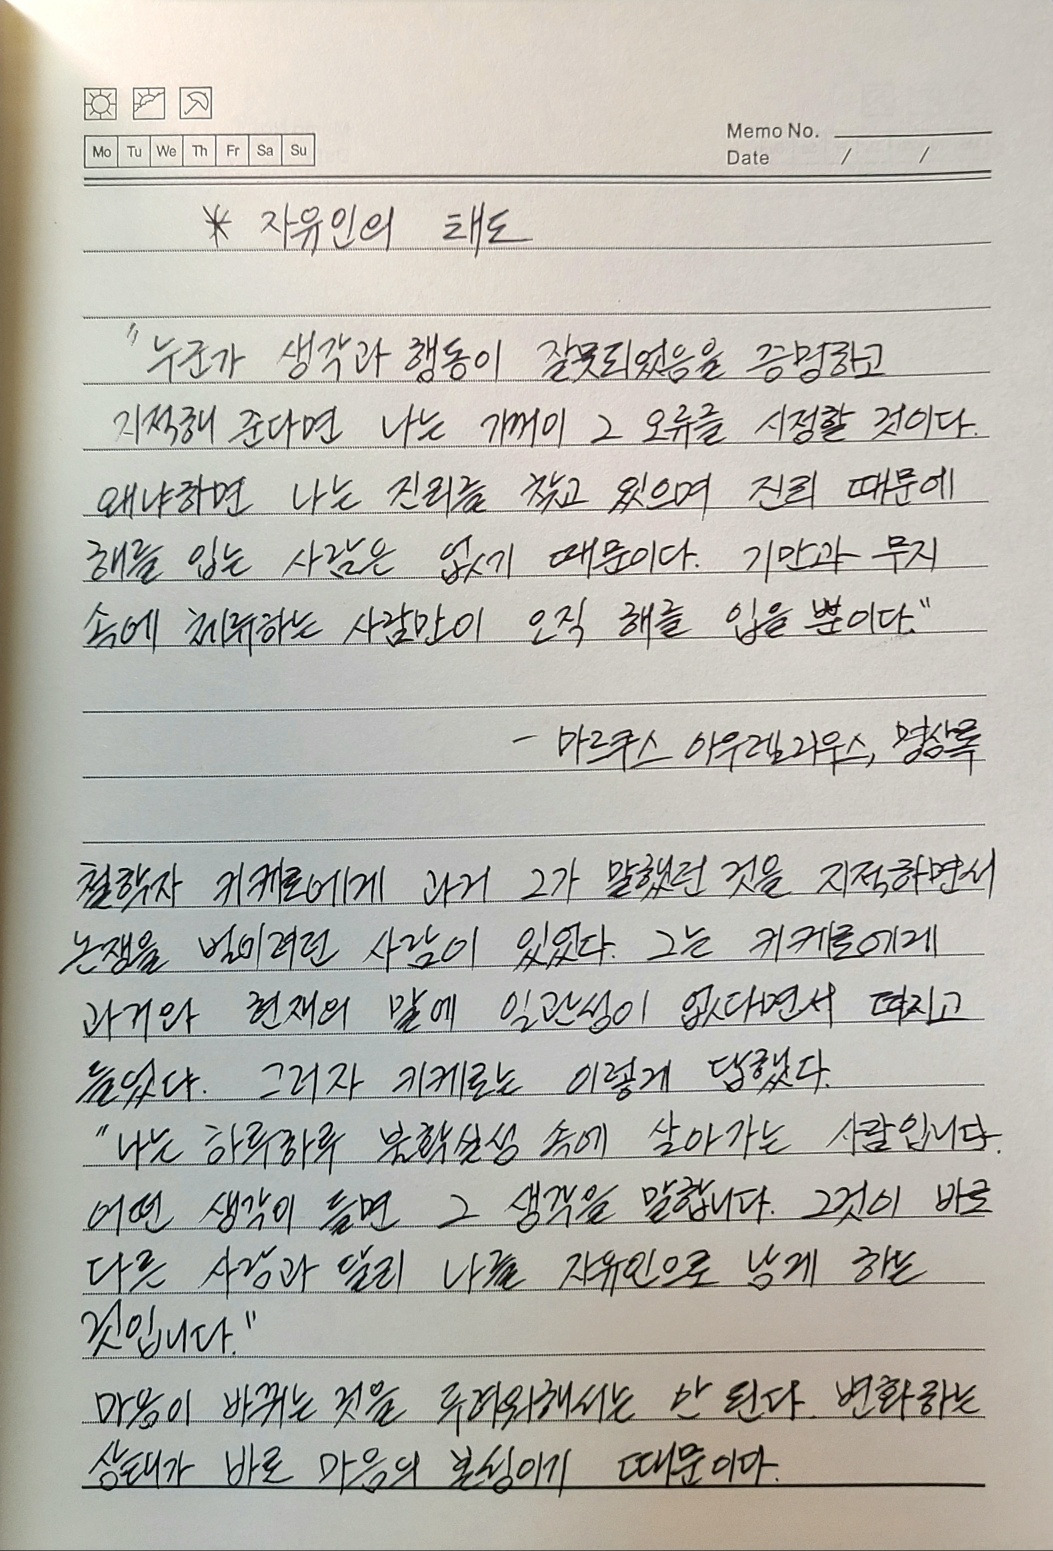 Memo No.
Mo Tu We Th Fr Sa Su
Date / /
* 자유인의 태도
"누군가 생각과 행동이 잘못되었음을 증명하고
지적해 준다면 나는 기꺼이 그 오류를 시정할 것이다.
왜냐하면 나는 진리를 찾고 있으며 진리 때문에
해를 입는 사람은 없기 때문이다. 기만과 무지
속에 체류하는 사람만이 오직 해를 입을 뿐이다."
- 마르쿠스 아우렐리우스, 명상록
철학자 키케로에게 과거 그가 말했던 것을 지적하면서
논쟁을 벌이려던 사람이 있었다. 그는 키케로에게
과거와 현재의 말에 일관성이 없다면서 따지고
들었다. 그러자 키케로는 이렇게 답했다.
"나는 하루하루 불확실성 속에 살아가는 사람입니다.
어떤 생각이 들면 그 생각을 말합니다. 그것이 바로
다른 사람과 달리 나를 자유인으로 남게 하는
것입니다."
마음이 바뀌는 것을 두려워해서는 안 된다. 변화하는
상태가 바로 마음의 본성이기 때문이다.